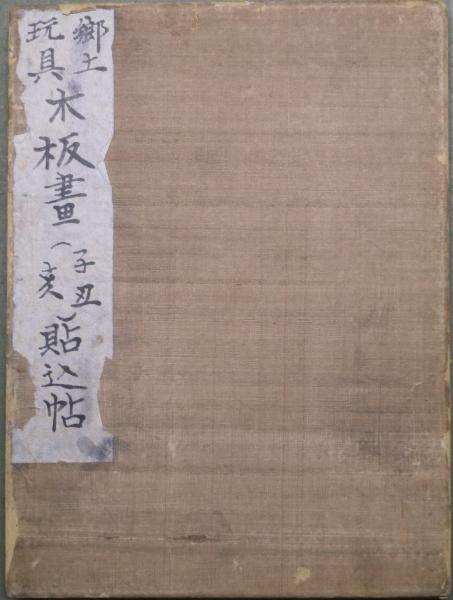 郷土
玩具
木板畫(子丑
亥)貼込帖